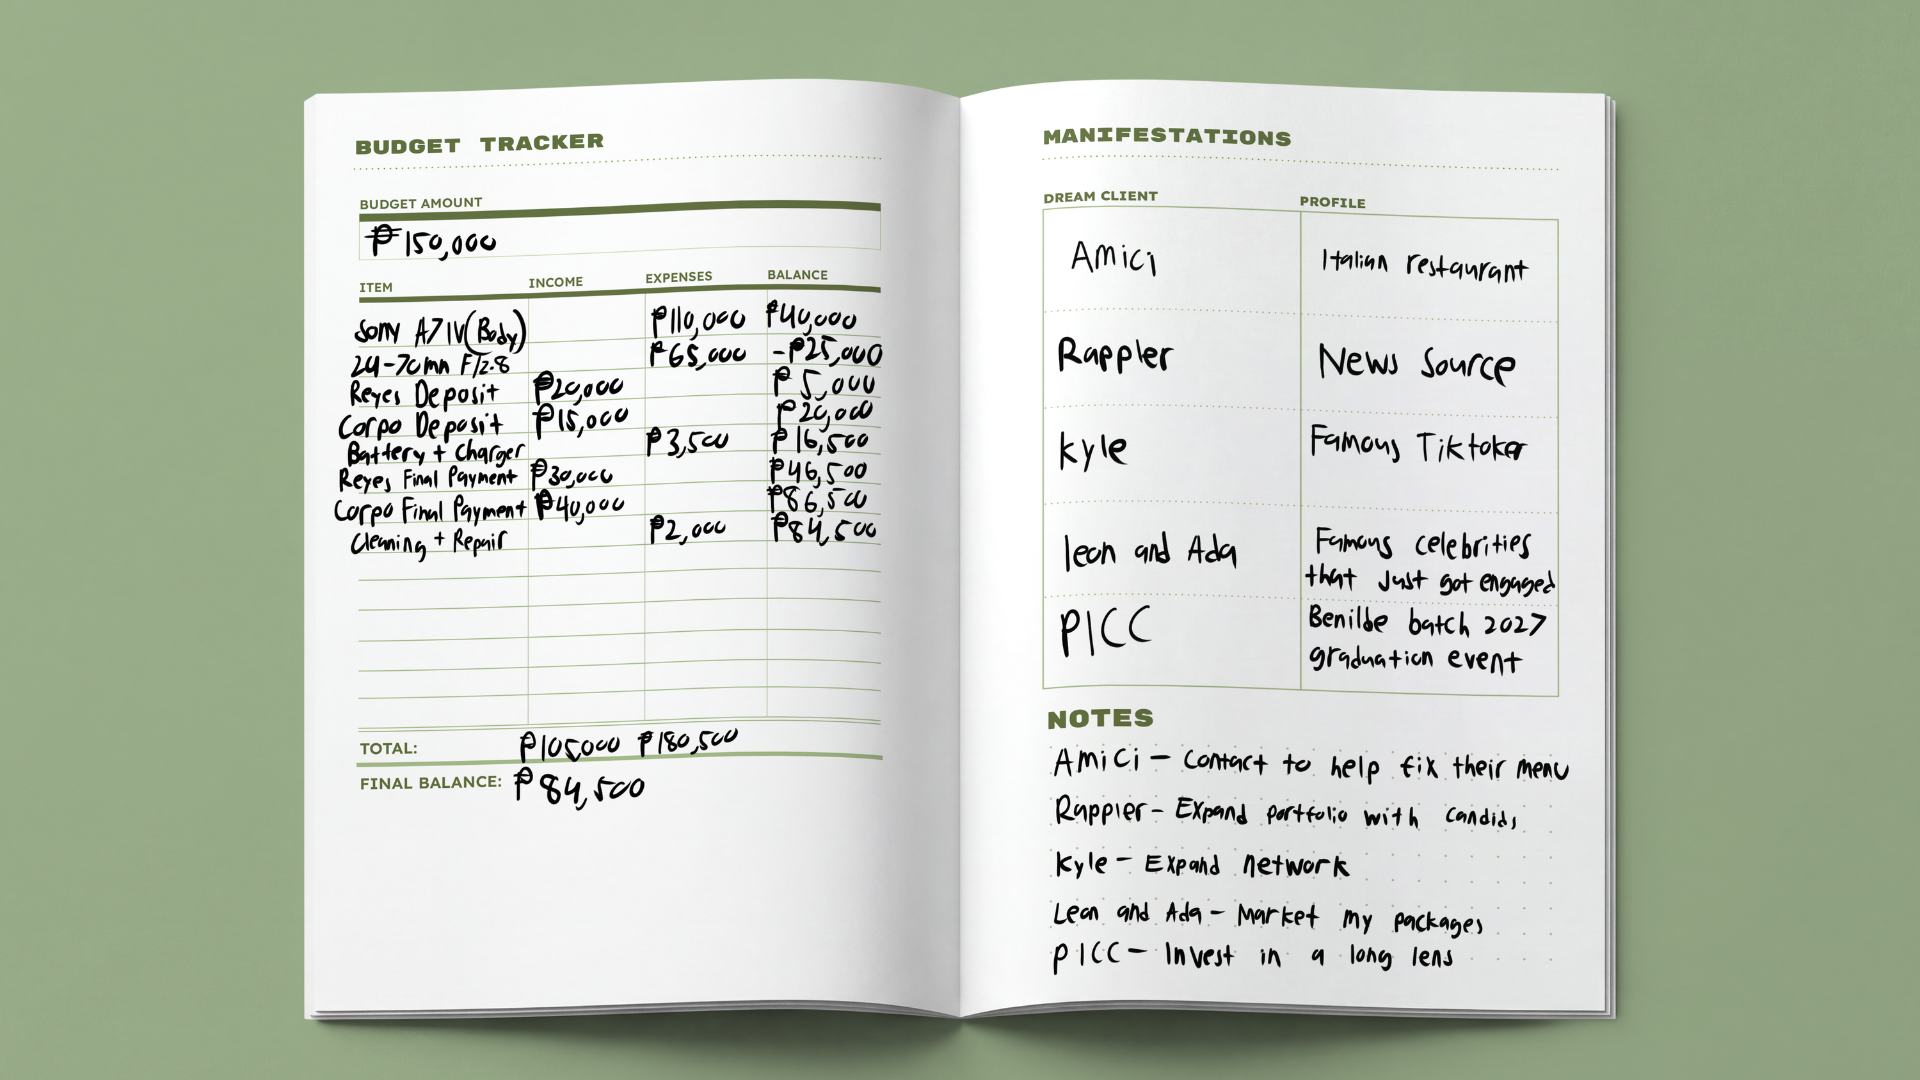 BUDGET TRACKER
BUDGET AMOUNT
₱150,000
ITEM INCOME EXPENSES BALANCE
Sony A7IV (Body) ₱110,000 ₱40,000
24-70mm F/2.8 ₱65,000 -₱25,000
Reyes Deposit ₱20,000 ₱5,000
Corpo Deposit ₱15,000 ₱20,000
Battery + Charger ₱3,500 ₱16,500
Reyes Final Payment ₱30,000 ₱46,500
Corpo Final Payment ₱40,000 ₱86,500
Cleaning + Repair ₱2,000 ₱84,500
TOTAL: ₱105,000 ₱180,500
FINAL BALANCE: ₱84,500
MANIFESTATIONS
DREAM CLIENT PROFILE
Amici Italian restaurant
Rappler News Source
Kyle Famous Tiktoker
leon and Ada Famous celebrities
that Just got engaged
PICC Benilde batch 2027
graduation event
NOTES
Amici - Contact to help fix their menu
Rappler - Expand portfolio with candids
Kyle - Expand network
Leon and Ada - Market my packages
PICC - Invest in a long lens